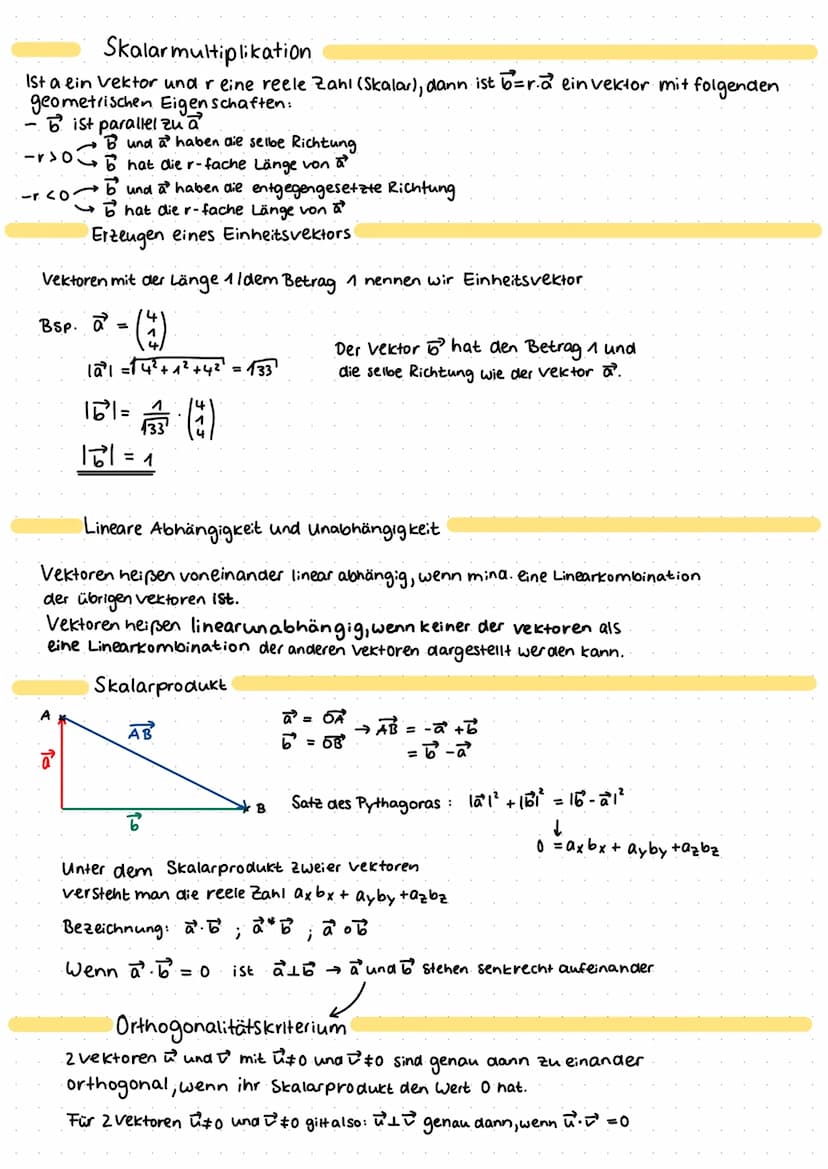 Skalarmultiplikation
Ist a ein Vektor und r eine reele Zahl (Skalar), dann ist b⃗=r.a⃗ ein vektor mit folgenden
geometrischen Eigenschaften:
- b⃗ ist parallel zu a⃗
-r>0 → b⃗ und a⃗ haben die selbe Richtung
→ b⃗ hat die r-fache Länge von a⃗
-r<0 → b⃗ und a⃗ haben die entgegengesetzte Richtung
→ b⃗ hat die r-fache Länge von a⃗
Erzeugen eines Einheitsvektors
Vektoren mit der Länge 1/dem Betrag 1 nennen wir Einheitsvektor
Bsp. a⃗ = (4 1 4)
|a⃗| = √4²+1²+4² = √33
Der Vektor b⃗ hat den Betrag 1 und
die selbe Richtung wie der vektor a⃗.
|b⃗| = 1/√33 · (4 1 4)
|b⃗| = 1
Lineare Abhängigkeit und Unabhängigkeit
Vektoren heißen voneinander linear abhängig, wenn mind. eine Linearkombination
der übrigen vektoren ist.
Vektoren heißen linear unabhängig, wenn keiner der vektoren als
eine Linearkombination der anderen Vektoren dargestellt werden kann.
Skalarprodukt
A
AB⃗
a⃗
b⃗
B
a⃗ = OA⃗
b⃗ = OB⃗
→ AB⃗ = -a⃗ + b⃗
= b⃗ - a⃗
Satz des Pythagoras : |a⃗|² + |b⃗|² = |b⃗ - a⃗|²
↓
0 = axbx + ayby + azbz
Unter dem Skalarprodukt zweier Vektoren
versteht man die reele Zahl axbx + ayby + azbz
Bezeichnung: a⃗·b⃗ ; a⃗*b⃗ ; a⃗∘b⃗
Wenn a⃗·b⃗ = 0 ist a⃗⊥b⃗ → a⃗ und b⃗ stehen senkrecht aufeinander
Orthogonalitätskriterium
2 Vektoren u⃗ und v⃗ mit u⃗≠0 und v⃗≠0 sind genau dann zu einander
orthogonal, wenn ihr Skalarprodukt den Wert 0 hat.
Für 2 Vektoren u⃗≠0 und v⃗≠0 gilt also: u⃗⊥v⃗ genau dann, wenn u⃗·v⃗ = 0